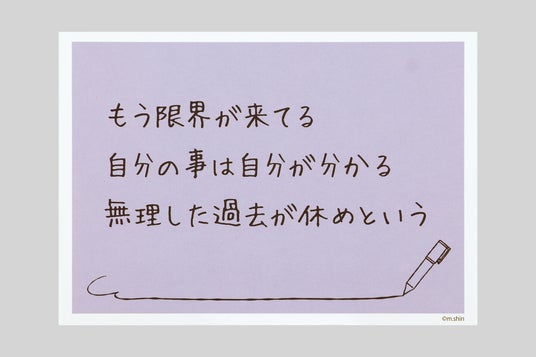 もう限界が来てる
自分の事は自分が分かる
無理した過去が休めという
©m.shin